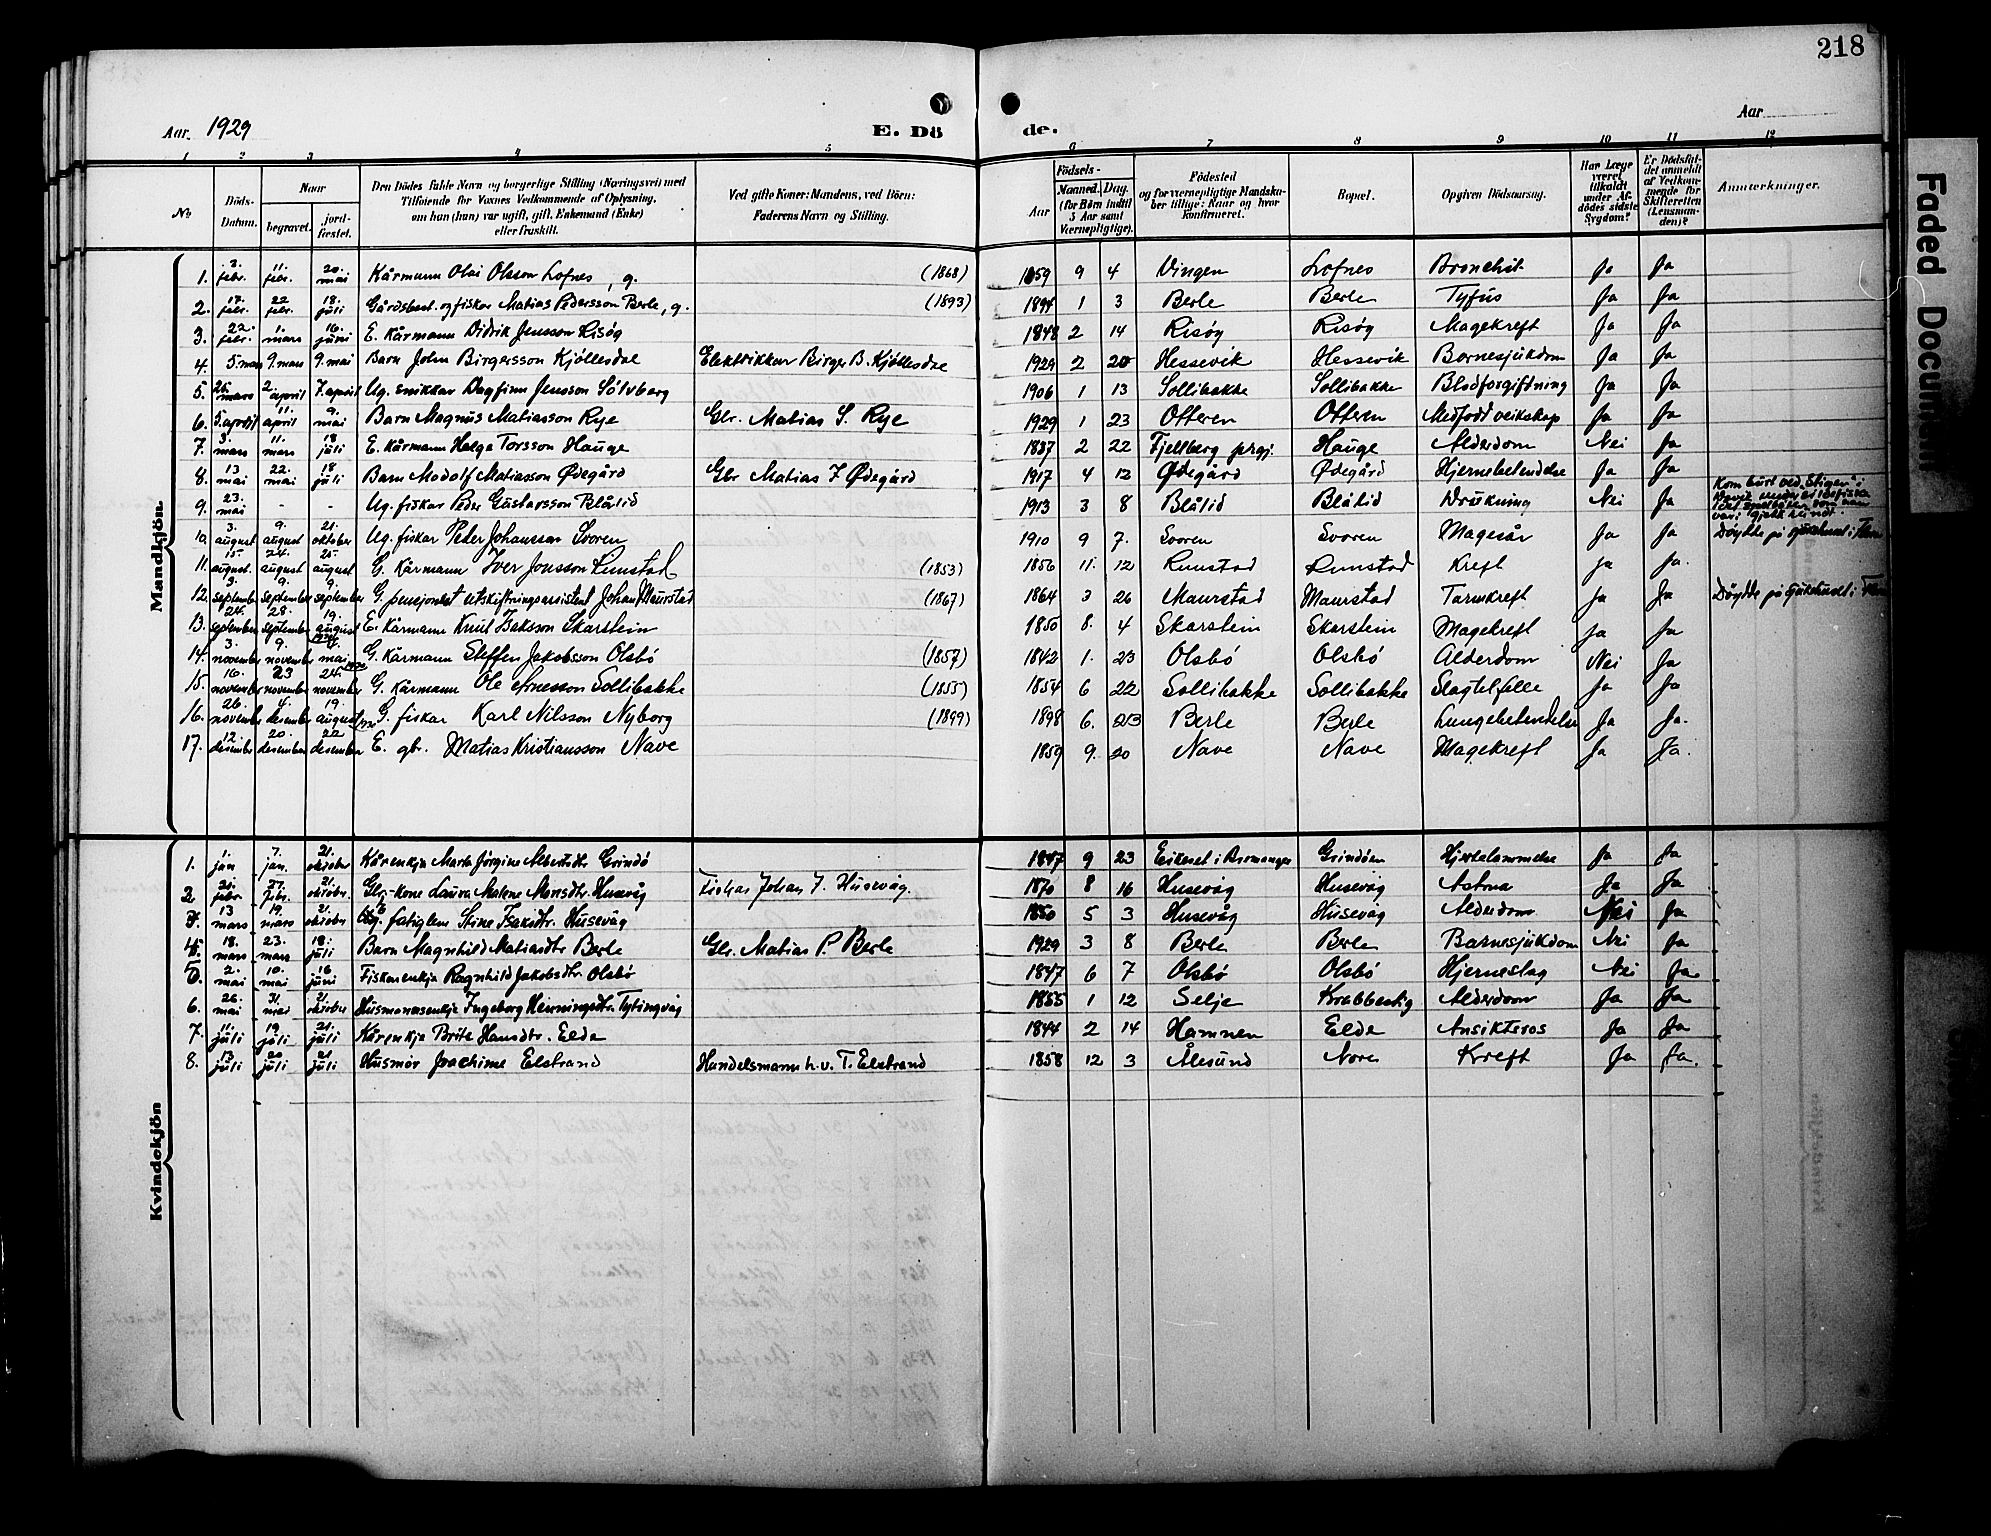 218
Aar. 1929
E. Döde.
Aar
1 2 3 4 5 6 7 8 9 10 11 12
No
Döds-Datum.
Naar
begravet.
jordfæstet.
Den Dödes fulde Navn og borgerlige Stilling (Næringsvei) med Tilföiende for Voxnes Vedkommende af Oplysning, om han (hun) var ugift, gift, Enkemand (Enke) eller fraskilt.
Ved gifte Koner: Mandens, ved Börn: Faderens Navn og Stilling.
Födsels-
Aar
Maaned. Dag.
(for Börn indtil 5 Aar samt Værnepligtige).
Födested og for værnepligtige Mandskaber tillige: Naar og hvor konfirmeret.
Bopæl.
Opgiven Dödsaarsag.
Har Læge været tilkaldt under Afdödes sidste Sygdom?
Er Dödsfaldet anmeldt af Vedkommende for Skifteretten (Lensmanden)?
Anmærkninger.
Mandkjön.
1. 2. febr. 11. febr. 20 mai Kårmann Olai Olsson Lofnes, g. (1868) 1859 9 4 Vingen Lofnes Bronchit Ja Ja
2. 17. febr. 22 febr. 18. juli Gårdsbest. og fiskar Matias Pedersson Berle, g. (1893) 1 3 Berle Berle Tyfus Ja Ja
3. 22. febr. 1. mars 16. juni E. Kårmann Didrik Jensson Risøy 1848 2 14 Risøy Risøy Magekreft Ja Ja
4. 5. mars 9. mars 9. mai Barn John Birgersson Kjøllesdal Elektrikker Birger B. Kjøllesdal 1929 2 20 Hessevik Hessevik Barnesjukdom Ja Ja
5. 26. mars 2. april 7. april Ug. snikkar Dagfinn Jensson Sölvberg 1906 1 13 Sollibakke Sollibakke Blodforgiftning Ja Ja
6. 5. april 11. april 9. mai Barn Magnus Matiasson Rye Gbr. Matias S. Rye 1929 1 23 Otteren Otteren Medfödd veikskap Ja Ja
7. 3. mars 11. mars 18 juli E. Kårmann Helge Torsson Hauge 1837 2 22 Fjellberg prgj. Hauge Alderdom Nei Ja
8. 13 mai 22. mai 18 juli Barn Modolf Matiasson Ødegård Gbr Matias J Ødegård 1917 4 12 Ødegård Ødegård Hjernebetendelse Ja Ja
9. 23. mai - - Ug. fiskar Peder Gustavsson Blålid 1913 3 8 Blålid Blålid Drukning Nei Ja Kom burt ved
10 3. august 9. august 21. oktober Ug. fiskar Peder Johansson Svoren 1910 9 7. Svoren Svoren Magesår Ja Ja Döydde på sjukehuset i
11. 15. august. 24. august 25. august G. Kårmann Iver Jonsson Rimstad (1853) 1856 11. 12 Rimstad Rimstad Kreft Ja Ja.
12. 3. september 9. september 9. september G. pensjonert utskiftningsassistent Johan Maurstad (1867) 1864 3 26 Maurstad Maurstad Tarmkreft Ja Ja Döydde på sjukehuset i
13. 24. september 28. september 19. august E. Kårmann Knut Isaksson Skarstein 1850 8. 4 Skarstein Skarstein Magekreft Ja Ja
14. 3. november 9. november mai G. Kårmann Steffen Jakobsson Olsbö (1857) 1842 1. 23 Olsbö Olsbö Alderdom Nei Ja
15. 16. november 23 november 24. november G. Kårmann Ole Arnesson Sollibakke (1855) 1854 6 22 Sollibakke Sollibakke Slagtilfelle Ja Ja
16. 26. november 4. desember 19. august G. fiskar Karl Nilsson Nyborg (1899) 1898 6. 23 Berle Berle Lungebetendelse Ja Ja.
17. 12. desember 20. desember 22 desember E. gbr. Matias Kristiansson Nave 1859 9. 20 Nave Nave Magekreft Ja Ja.
Kvindekjön
1. 1. jan 7. jan. 21. oktober Kårenkje Marte Jörgine Albertsdtr Grindö 1847 9 23 Eikeset i Bremanger Grindöen Hjertelammelse Ja Ja
2 21. febr 27. febr. 21. oktobr. Gbr.-kone Laura Malene Monsdtr Husevåg Fiskar Johan J. Husevåg. 1870 8 16 Husevåg Husevåg Astma Ja Ja
3. 13 mars 19. mars 21. oktobr Ug. fatiglem Stine Isaksdtr. Husevåg 1850 5 3 Husevåg Husevåg Alderdom Nei Ja
4. 18. mars 23. mars 18. juli Barn Magnhild Matiasdtr Berle Gbr. Matias P. Berle 1929 3 8 Berle Berle Barnesjukdom Nei Ja
5. 2. mai 10. mai 16 juni Fiskarenkje Ragnhild Jakobsdtr Olsbö 1847 6 7 Olsbö Olsbö Hjerneslag Nei Ja.
6. 26. mai 31. mai 21. oktober Husmannsenkje Ingeborg Henningsdtr. Tytingvåg 1855 1 12 Selje Krabbestig Alderdom Ja Ja
7. 11. juli 19. juli 21. juli Kårenkje Brite Hansdtr. Elde 1844 2 14 Hamnen Elde Ansiktsros Ja Ja
8. 13 juli 20 juli 21 juli Husmor Joachime Elstrand Handelsmann h.v. T. Elstrand 1858 12 3 Ålesund Nore Kreft Ja Ja.
Faded Document